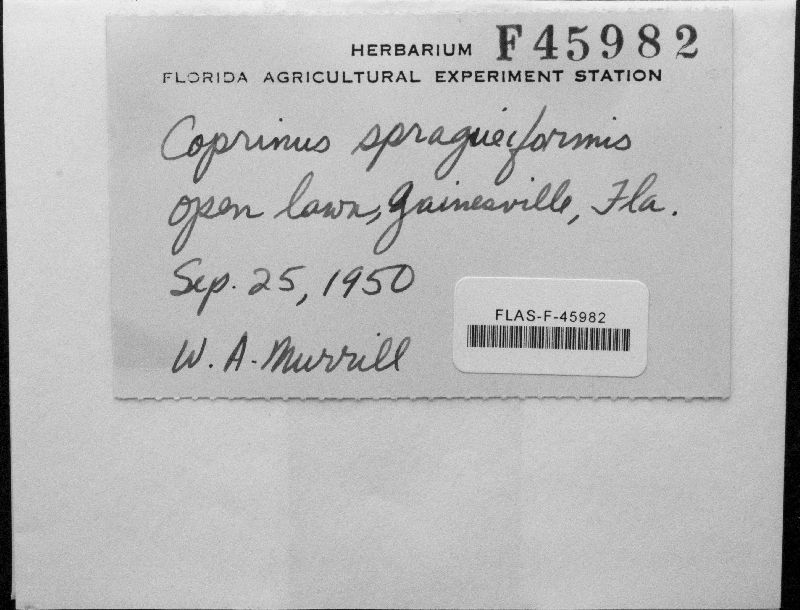 HERBARIUM F45982
FLORIDA AGRICULTURAL EXPERIMENT STATION
Coprinus spragueiformis
open lawn, Gainesville, Fla.
Sep. 25, 1950
FLAS-F-45982
W. A. Murrill